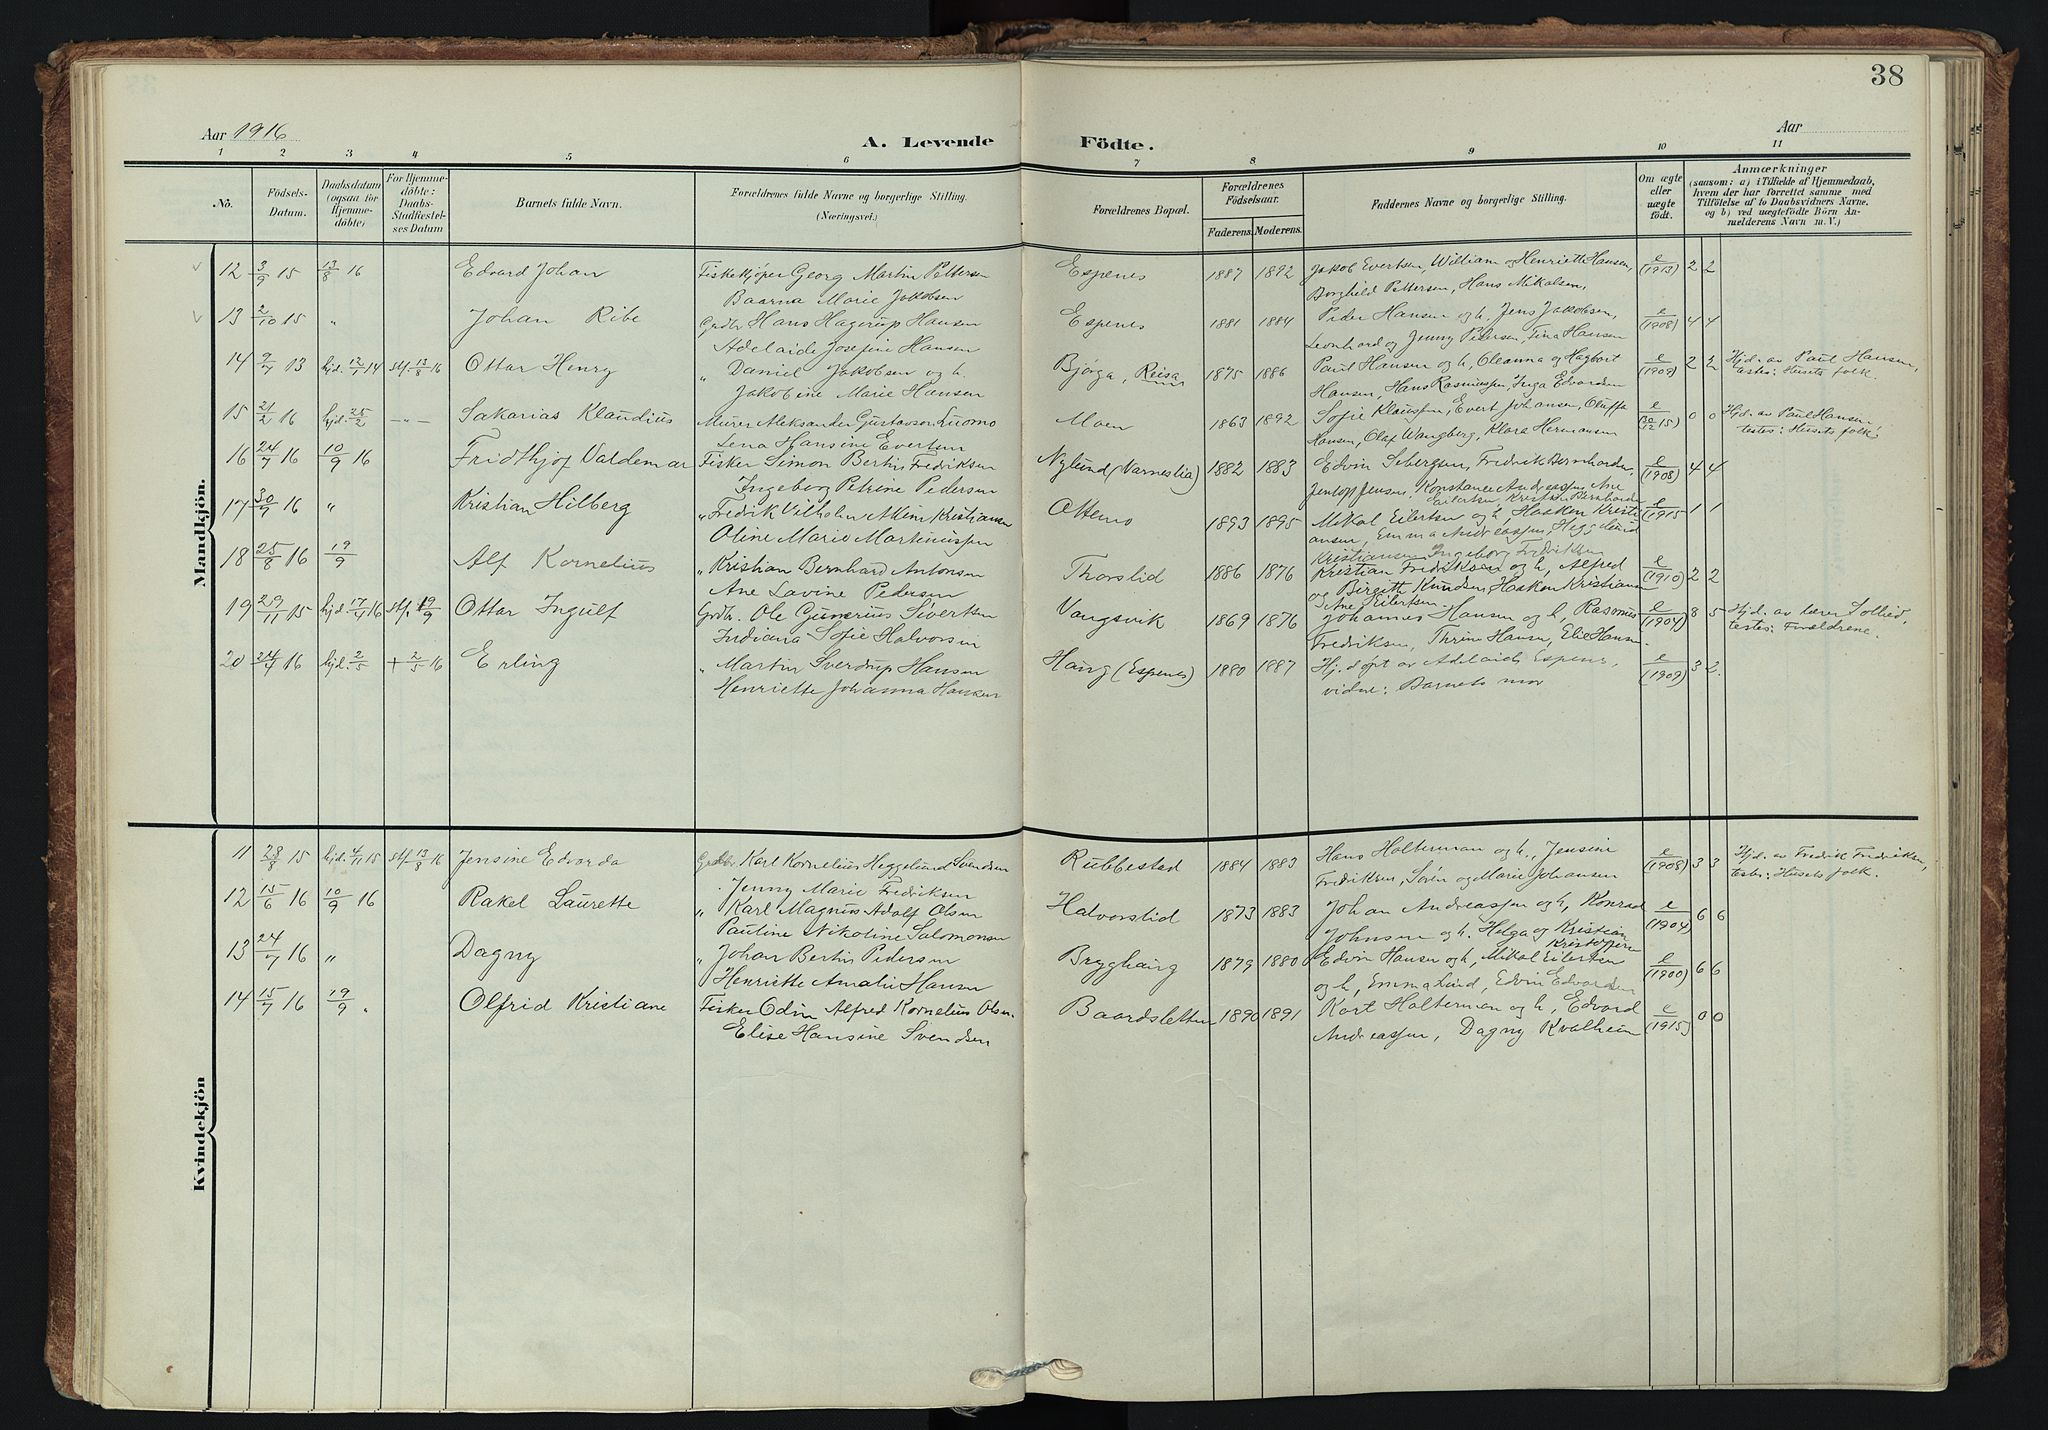 38
Aar 1916
A. Levende
Födte.
Aar
1 2 3 4 5 6 7 8 9 10 11
No.
Födsels-Datum.
Daabsdatum (ogsaa for Hjemmedöbte)
For Hjemmedöbte: Daabs-Stadfæstelses Datum
Barnets fulde Navn.
Forældrenes fulde Navne og borgerlige Stilling.
(Næringsvei.)
Forældrenes Bopæl.
Forældrenes Födselsaar.
Faderens. Moderens.
Faddernes Navne og borgerlige Stilling.
Om ægte eller uægte födt.
Anmærkninger
(saasom: a) i Tilfælde af Hjemmedaab,
hvem der har forrettet samme med
Tilföielse af to Daabsvidners Navne.
og b) ved uægtefödte Börn Anmelderens Navn m. V.)
Mandkjön.
12 3/9 15 13/8 16 Edvard Johan Fiskekjöper Georg Martin Pettersen Espenes 1887 1892 Jakob Evertsen, William og Henriette Hansen, e (1913) 2 2
Baarna Marie Jakobsen Borghild Pettersen, Hans Mikalsen.
13 2/10 15 " Johan Ribe Grdbr Hans Hagerup Hansen Espenes 1881 1884 Peder Hansen og h, Jens Jakobsen, e (1908) 4 4
Adelaide Josefine Hansen Leonhard og Jenny Pedersen, Tina Hansen
14 9/7 13 hjd. 12/7 14 stf. 13/8 16 Ottar Henry " Daniel Jakobsen og h. Bjørga, Reisa 1875 1886 Paul Hansen og h, Oleanna og Hagbart e (1909) 2 2 Hjd. av Paul Hansen,
Jakobine Marie Hansen Hansen, Hans Rasmussen, Inga Edvardsen testes: Husets folk.
15 21/2 16 hjd. 25/2 -"- Sakarias Klaudius Murer Aleksander Gustavson Luomo Moen 1863 1892 Sofie Klausen, Evert Johansen, Oluffa e (30/12 15) 0 0 Hjd. av Paul Hansen
Lena Hansine Evertsen Hansen, Olaf Wangberg, Klara Hermansen testes: Husets folk.
16 24/7 16 10/9 16 Fridthjof Valdemar Fisker Simon Bertin Fredriksen Nylund (Varneslia) 1882 1883 Edvin Sebergsen, Fredrik Bernhardsen, e (1908) 4 4
Ingeborg Petrine Pedersen Jentoft Jensen, Konstance Andreassen, Ane
Eilertsen Kristian Bernhardsen
17 30/7 16 " Kristian Hilberg " Fredrik Vilhelm Akim Kristiansen Ottemo 1893 1895 Mikal Eilertsen og h, Haaken Kristi e (1915 1 1
Oline Marie Martinussen ansen, Emma Andreassen, Heggelund
Kristiansen Ingeborg Fredriksen
18 25/8 16 19/9 Alf Kornelius " Kristian Bernhard Antonsen Thorslid 1886 1876 Kristian Fredriksen og h, Alfred e (1910) 2 2
Ane Lavine Pedersen og Birgitte Knudsen, Haaken Kristiansen
Ane Eilertsen
19 29/11 15 hjd. 17/4 16 stf. 19/9 Ottar Ingulf Grdbr. Ole Gunerius Sivertsen Vangsvik 1869 1876 Johannes Hansen og h, Rasmus e (1904) 8 5 Hjd. av lærer Sollied,
Indiana Sofie Halvorsen Fredriksen, Thrine Hansen, Elie Hansen testes: Forældrene.
20 24/4 16 hjd. 2/5 + 2/5 16 Erling " Martin Sverdrup Hansen Haug (Espenes) 1880 1887 Hj. døpt av Adelaide Espenes, e (1909) 3 2.
Henriette Johanna Hansen vidne: Barnets mor
Kvindekjön
11 28/8 15 hjd. 4/11 15 stf. 13/8 16 Jensine Edvarda Grdbr Karl Kornelius Heggelund Svendsen Rubbestad 1884 1883 Hans Halterman og h., Jensine e (1908) 3 3 Hjd. av Fredrik Fredriksen,
Jenny Marie Fredriksen Fredriksen, Søren og Marie Johansen testes: Husets folk.
12 15/6 16 10/9 16 Rakel Laurette " Karl Magnus Adolf Olsen Halvorslid 1873 1883 Johan Andreassen og h, Konrad e (1904) 6 6
Pauline Nikoline Salomonsen Johnsen og h. Helga og Kristian
Kristoffersen
13 24/7 16 " Dagny " Johan Bertin Pedersen Brygghaug 1879 1880 Edvin Hansen og h, Mikal Eilertsen e (1900) 6 6
Henriette Amalie Hansen og h, Emma Lund, Edvin Edvardsen
14 15/7 16 19/9 " Olfrid Kristiane Fisker Odin Alfred Kornelius Olsen. Baardsletten 1890 1891 Kart Halterman og h, Edvard e (1915) 0 0
Elise Hansine Svendsen Andreassen, Dagny Kvalheim